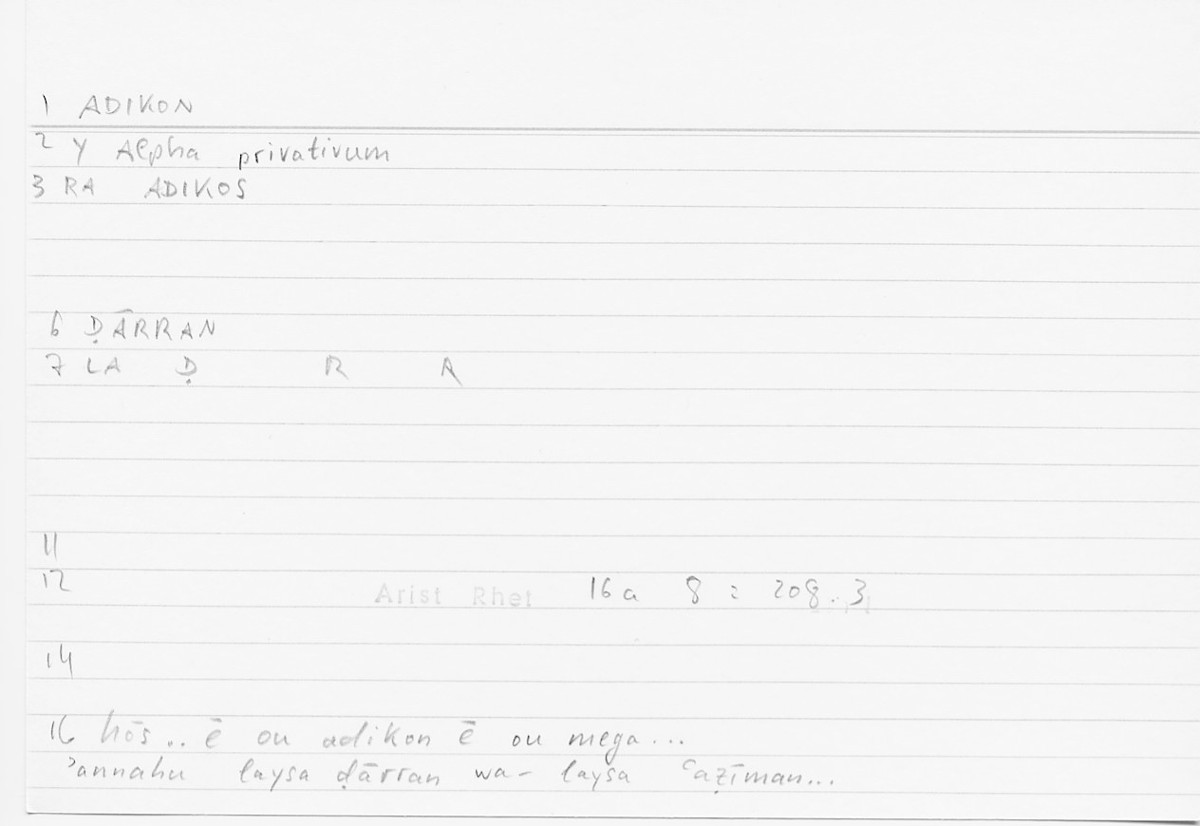 1 ADIKON
2 Y Alpha privativum
3 RA ADIKOS
6 ḌĀRRAN
7 LA Ḍ R A
11
12 Arist Rhet 16a 8 : 208.3
14
16 hōs.. ē ou adikon ē ou mega...
ʾannahu laysa ḍārran wa- laysa ʿaẓīman...